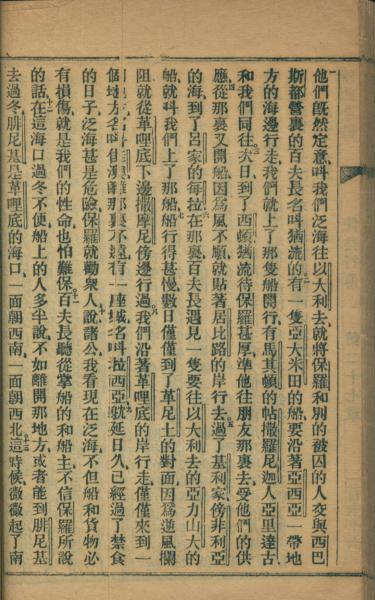 他們旣然定意叫我們泛海往以大利去就將保羅和別的被囚的人交與西巴
斯都營裏的百夫長名叫猶流的有一隻亞大米田的船要沿著亞西亞一帶地
方的海邊行走我們就上了那隻船開行有馬其頓的帖撒羅尼迦人亞里達古
和我們同往次日到了西頓猶流待保羅甚厚準他往朋友那裏去受他們的供
應從那裏又開船因爲風不順就貼著居比路的岸行去過了基利家傍非利亞
的海到了呂家的每拉在那裏百夫長遇見一隻要往以大利去的亞力山大的
船就叫我們上了那船船行得甚慢數日僅僅到了革尼土的對面因爲逆風攔
阻就從革哩底下邊撒摩尼傍邊行過我們沿著革哩底的岸行走僅僅來到一
個地方名叫佳澳離那裏不遠有一座城名叫拉西亞就延日久已經過了禁食
的日子泛海甚是危險保羅就勸衆人說諸公我看現在泛海不但船和貨物必
有損傷就是我們的性命也怕難保百夫長聽從掌船的和船主不信保羅所說
的話在這海口過冬不便船上的人多半說不如離開那地方或者能到腓尼基
去過冬腓尼基是革哩底的海口一面朝西南一面朝西北這時候微微起了南